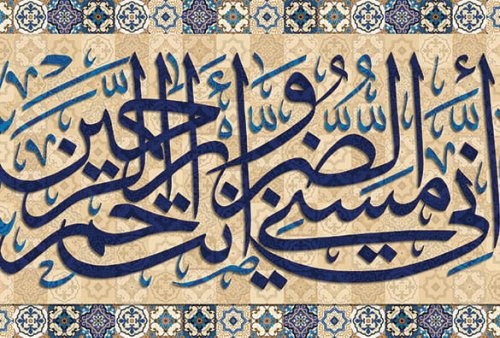 أَنِّي مَسَّنِيَ الضُّرُّ وَأَنْتَ أَرْحَمُ الرَّاحِمِينَ